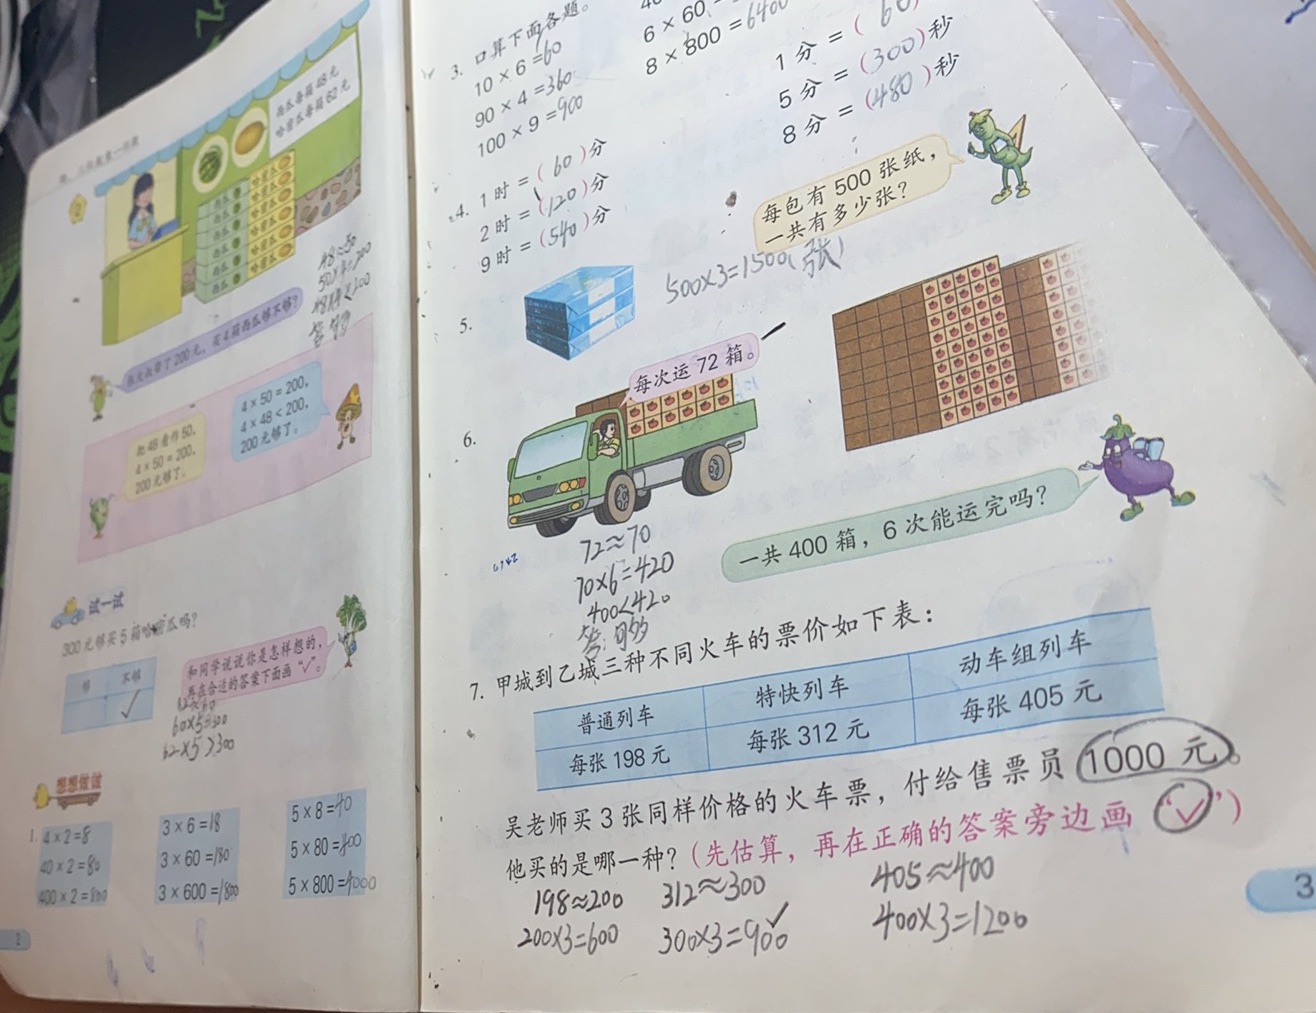 西瓜每箱48元
哈密瓜每箱62元
48≈50
50×4=200
48×4<200
答:够
买4箱西瓜够不够?
把48看作50,
4×50=200,
200元够了。
4×50=200,
4×48<200,
200元够了。
试一试
300元够买5箱哈密瓜吗?
够 不够
✓
和同学说说你是怎样想的,
再在合适的答案下面画“✓”。
62≈60
60×5=300
62×5>300
想想做做
1. 4×2=8
40×2=80
400×2=800
3×6=18
3×60=180
3×600=1800
5×8=40
5×80=400
5×800=4000
2
3. 口算下面各题。
10×6=60
90×4=360
100×9=900
6×60
8×800=6400
4. 1时=(60)分
2时=(120)分
9时=(540)分
1分=(60)秒
5分=(300)秒
8分=(480)秒
每包有500张纸,
一共有多少张?
5.
500×3=1500(张)
6.
每次运72箱。
一共400箱,6次能运完吗?
72≈70
70×6=420
400<420
答:够
7. 甲城到乙城三种不同火车的票价如下表:
普通列车 特快列车 动车组列车
每张198元 每张312元 每张405元
吴老师买3张同样价格的火车票,付给售票员1000元。
他买的是哪一种?(先估算,再在正确的答案旁边画“✓”)
198≈200 312≈300 405≈400
200×3=600 300×3=900 ✓ 400×3=1200
3